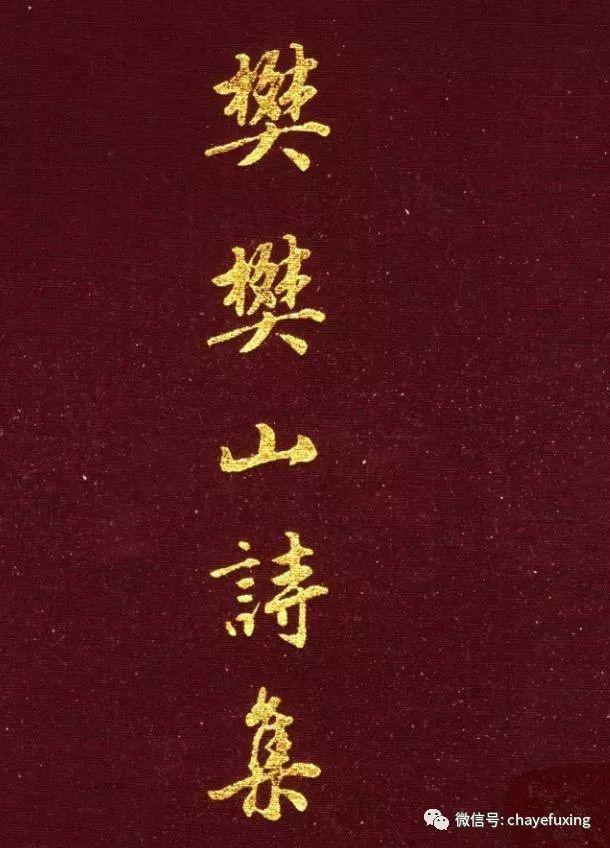 樊樊山詩集
微信号: chayefuxing